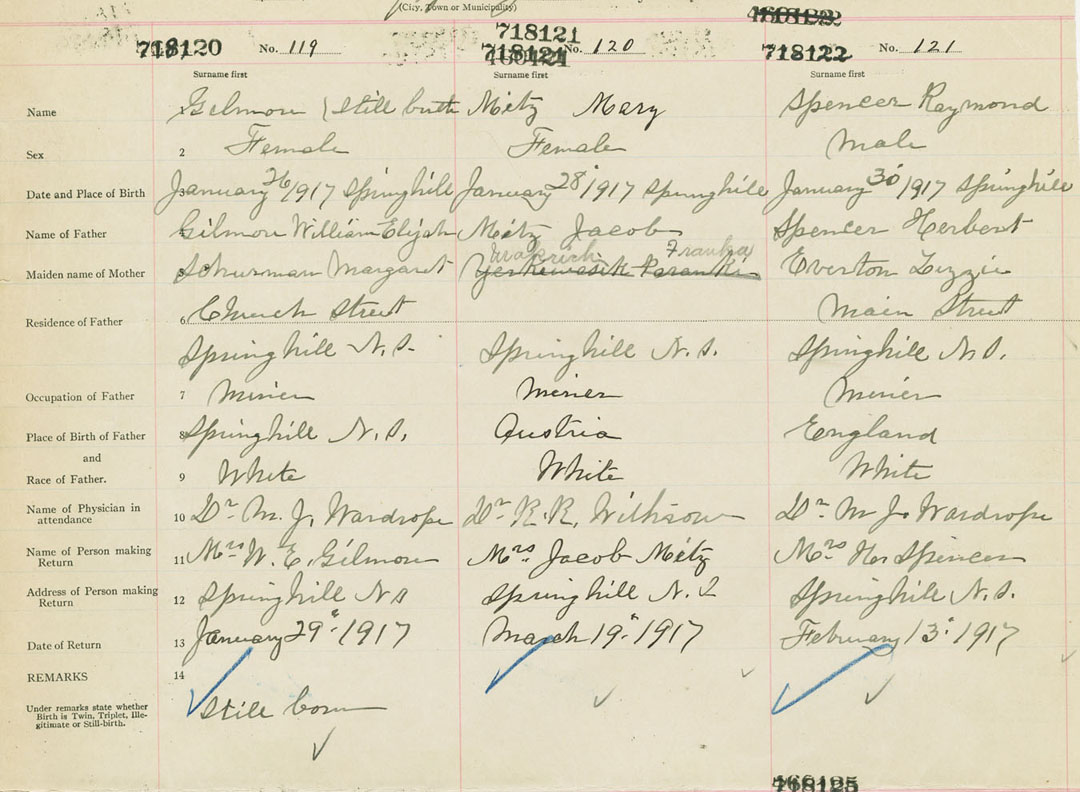 (City, Town or Municipality)
718120 No. 119 718121 No. 120 718122 No. 121
718121
Surname first Surname first Surname first
Name 1 Gilmore (Still birth Metz Mary Spencer Raymond
Sex 2 Female Female Male
Date and Place of Birth 3 January 26/1917 Springhill January 28/1917 Springhill January 30/1917 Springhill
Name of Father 4 Gilmore William Elijah Metz Jacob Spencer Herbert
Franka
Maiden name of Mother 5 Schurman Margaret Everton Lizzie
Residence of Father 6 Church Street Main Street
Springhill N.S. Springhill N.S. Springhill N.S.
Occupation of Father 7 Miner Miner Miner
Place of Birth of Father 8 Springhill N.S. Austria England
and
Race of Father. 9 White White White
Name of Physician in attendance 10 Dr M. J. Wardrope Dr R. R. Withrow Dr M J. Wardrope
Name of Person making Return 11 Mrs W. E. Gilmore Mrs Jacob Metz Mrs H. Spencer
Address of Person making Return 12 Springhill N S Springhill N. S Springhill N.S.
Date of Return 13 January 29" 1917 March 19" 1917 February 13" 1917
REMARKS 14
Under remarks state whether
Birth is Twin, Triplet, Ille-
gitimate or Still-birth.
Still born
718125